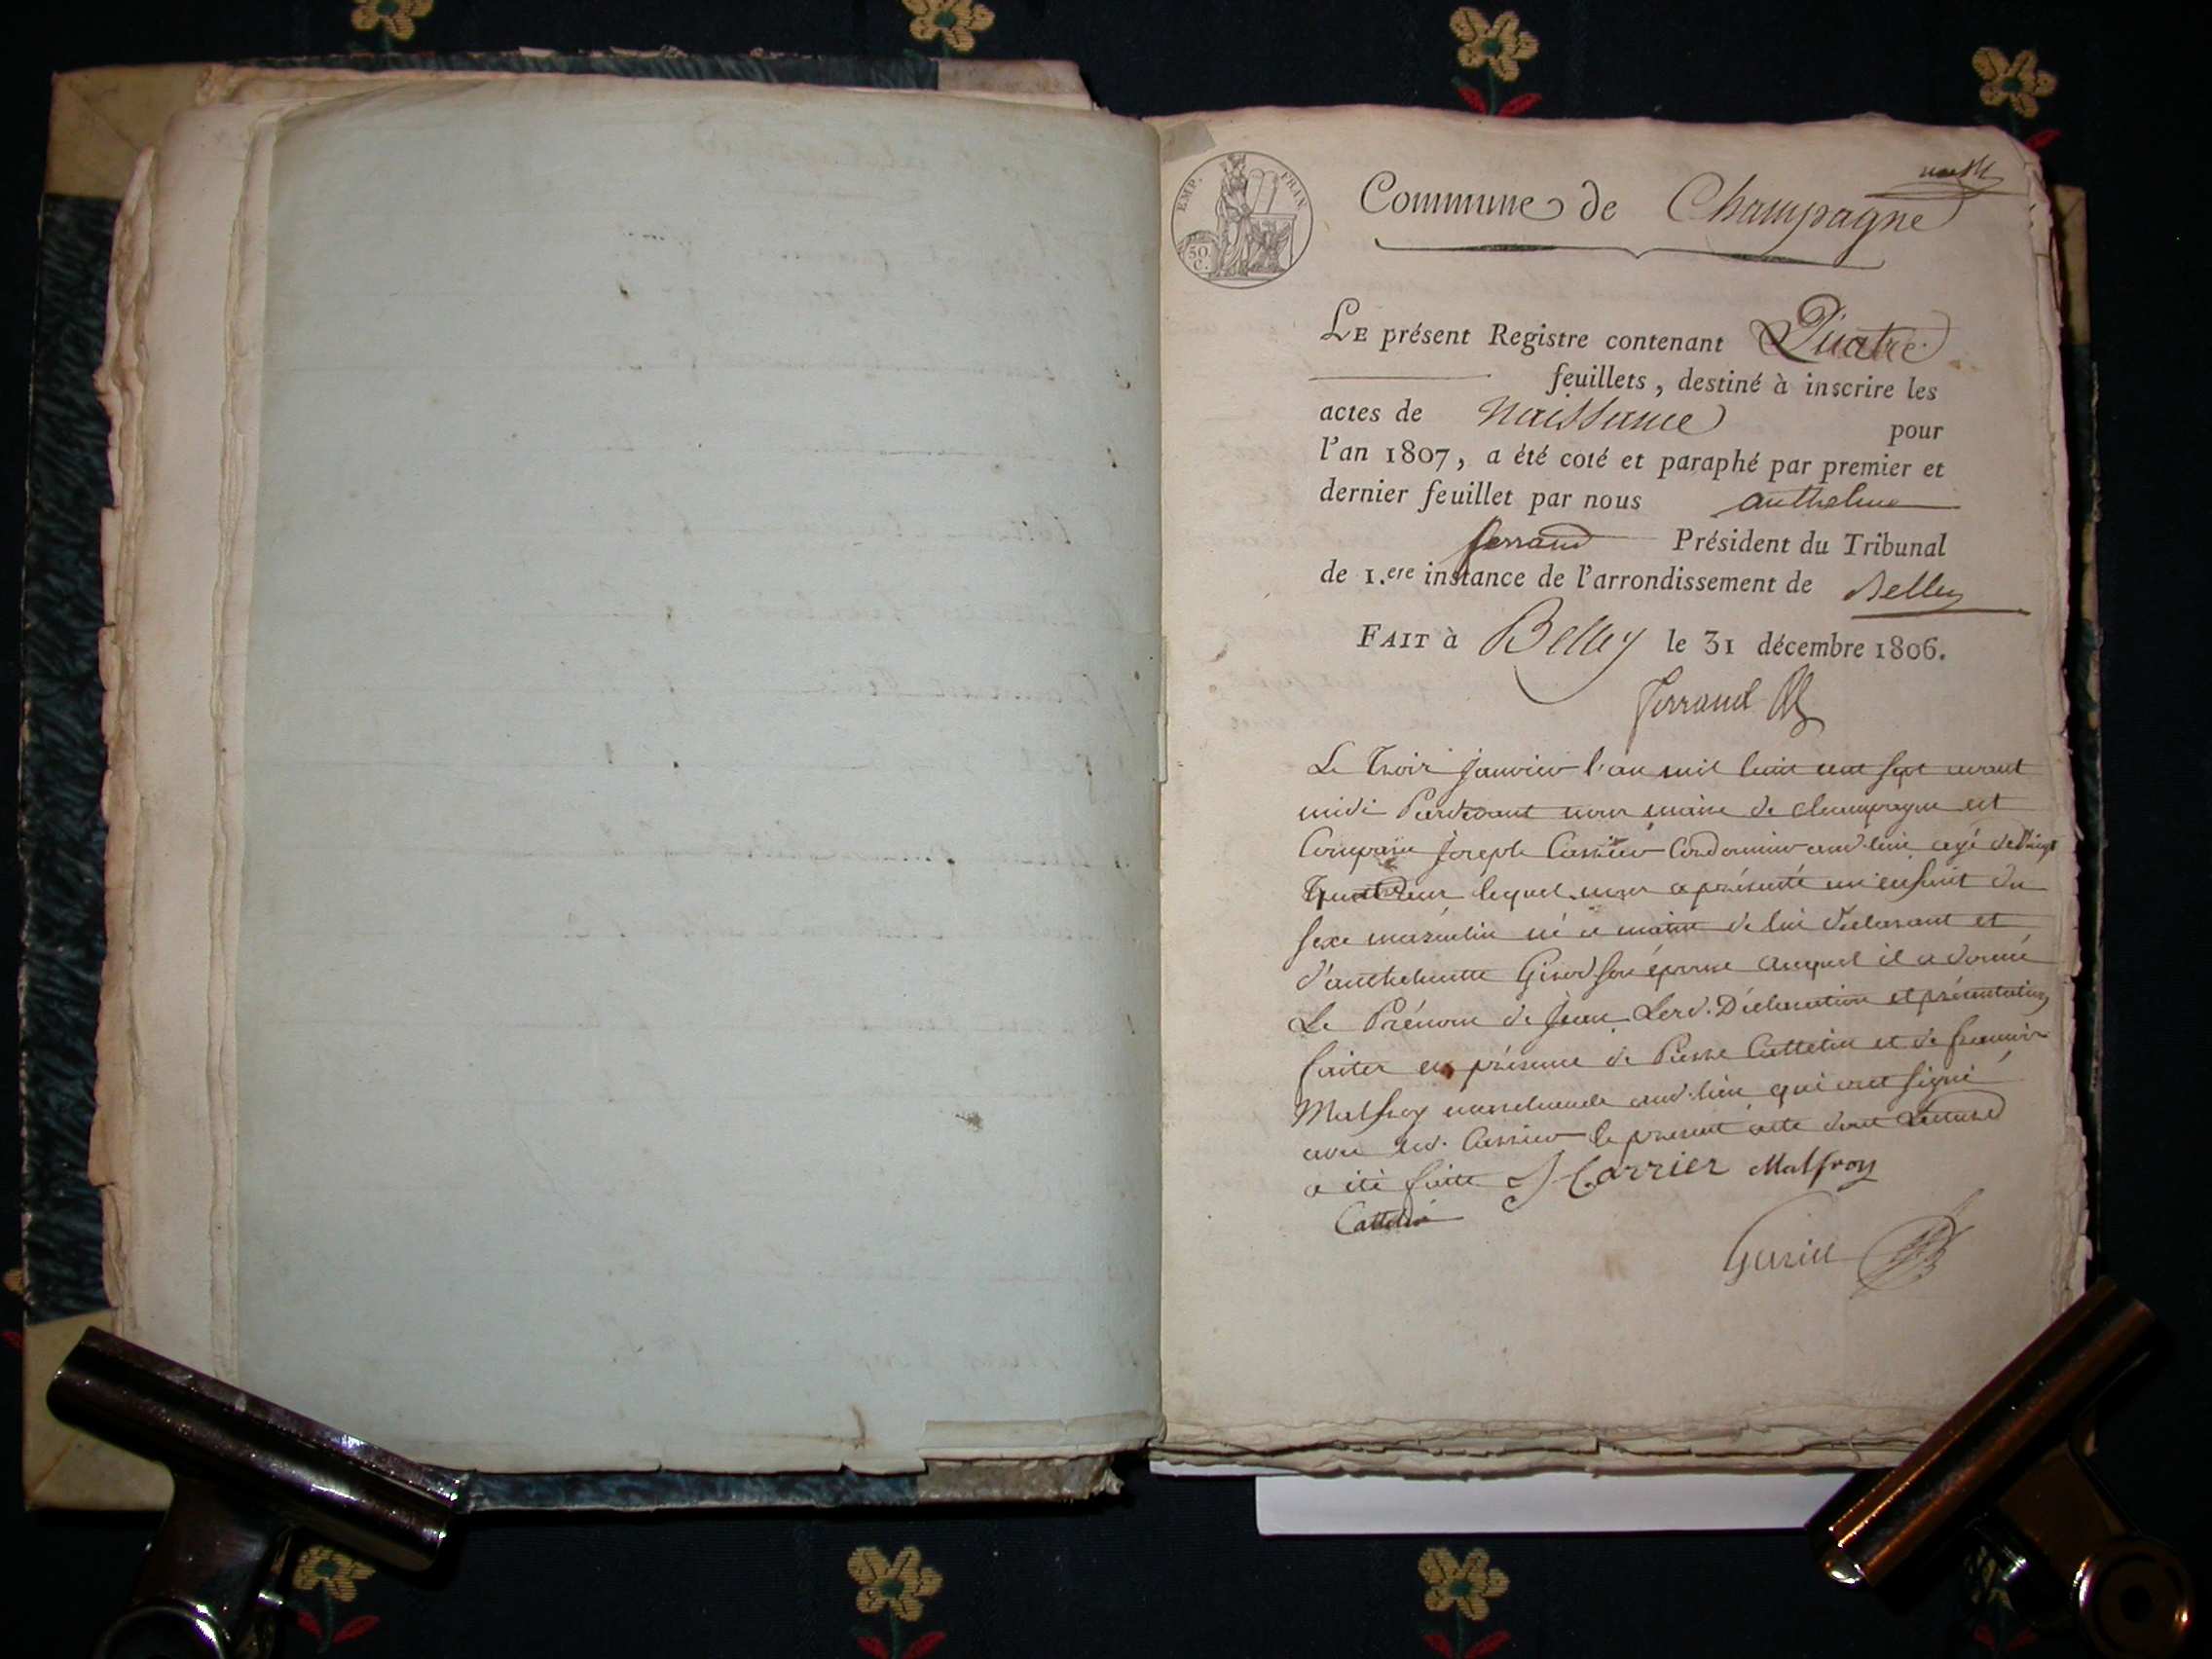 EMP. FRAN.
50. C.
Commune de Champagne
LE présent Registre contenant Quatre
feuillets, destiné à inscrire les
actes de Naissance pour
l'an 1807, a été coté et paraphé par premier et
dernier feuillet par nous anthelme
ferrand Président du Tribunal
de 1.ere instance de l'arrondissement de Belley
FAIT à Belley le 31 décembre 1806.
Ferrand
Le Trois Janvier l'an mil huit cent sept avant
midi Pardevant nous maire de champagne est
Comparu Joseph Carrier Cordonnier aud. lieu agé de vingt
lequel nous a présenté un enfant du
sexe masculin né ce matin de lui déclarant et
d'anthelmette Girod son épouse auquel il a donné
Le Prénom de Jean Lesd. Déclaration et présentation
faites en présence de Pierre Cattelin et de francois
Malfroy aud. lieu qui ont signé
avec led. Carrier le présent acte dont Lecture
a été faite J Carrier Malfroy
Cattelin